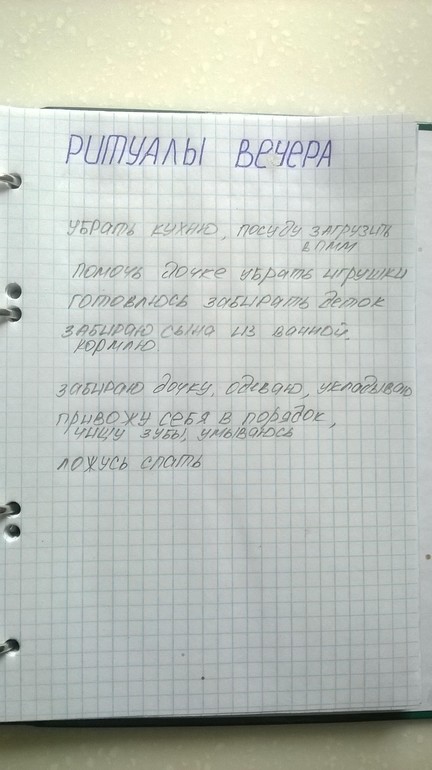 РИТУАЛЫ ВЕЧЕРА
УБРАТЬ КУХНЮ, ПОСУДУ ЗАГРУЗИТЬ
В ПММ
ПОМОЧЬ ДОЧКЕ УБРАТЬ ИГРУШКИ
ГОТОВЛЮСЬ ЗАБИРАТЬ ДЕТОК
ЗАБИРАЮ СЫНА ИЗ ВАННОЙ,
КОРМЛЮ.
ЗАБИРАЮ ДОЧКУ, ОДЕВАЮ, УКЛАДЫВАЮ
ПРИВОЖУ СЕБЯ В ПОРЯДОК,
ЧИЩУ ЗУБЫ, УМЫВАЮСЬ
ЛОЖУСЬ СПАТЬ